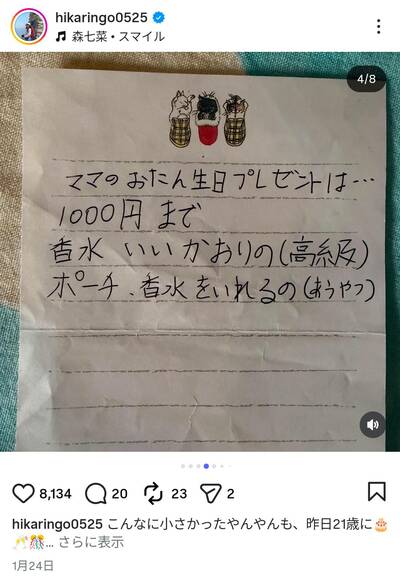 hikaringo0525
森七菜・スマイル
4/8
ママのおたん生日プレゼントは…
1000円まで
香水 いいかおりの(高級)
ポーチ、香水をいれるの(あうやつ)
8,134
20
23
2
hikaringo0525 こんなに小さかったやんやんも、昨日21歳に🎂
🥂🎊… さらに表示
1月24日